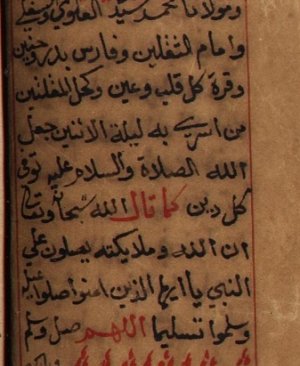 ومولانا محمد سيد العلوي وسفلي
وامام الثقلين وفارس بدر وحنين
وقرة كل قلب وعين وكحل المقلتين
من اسري به ليلة الاثنين جعل
الله الصلاة والسلام عليه توفي
كل دين كما قال الله سبحانه وتعالى
ان الله وملايكته يصلون على
النبي يا ايها الذين امنوا صلوا عليه
وسلموا تسليما اللهم صل وسلم